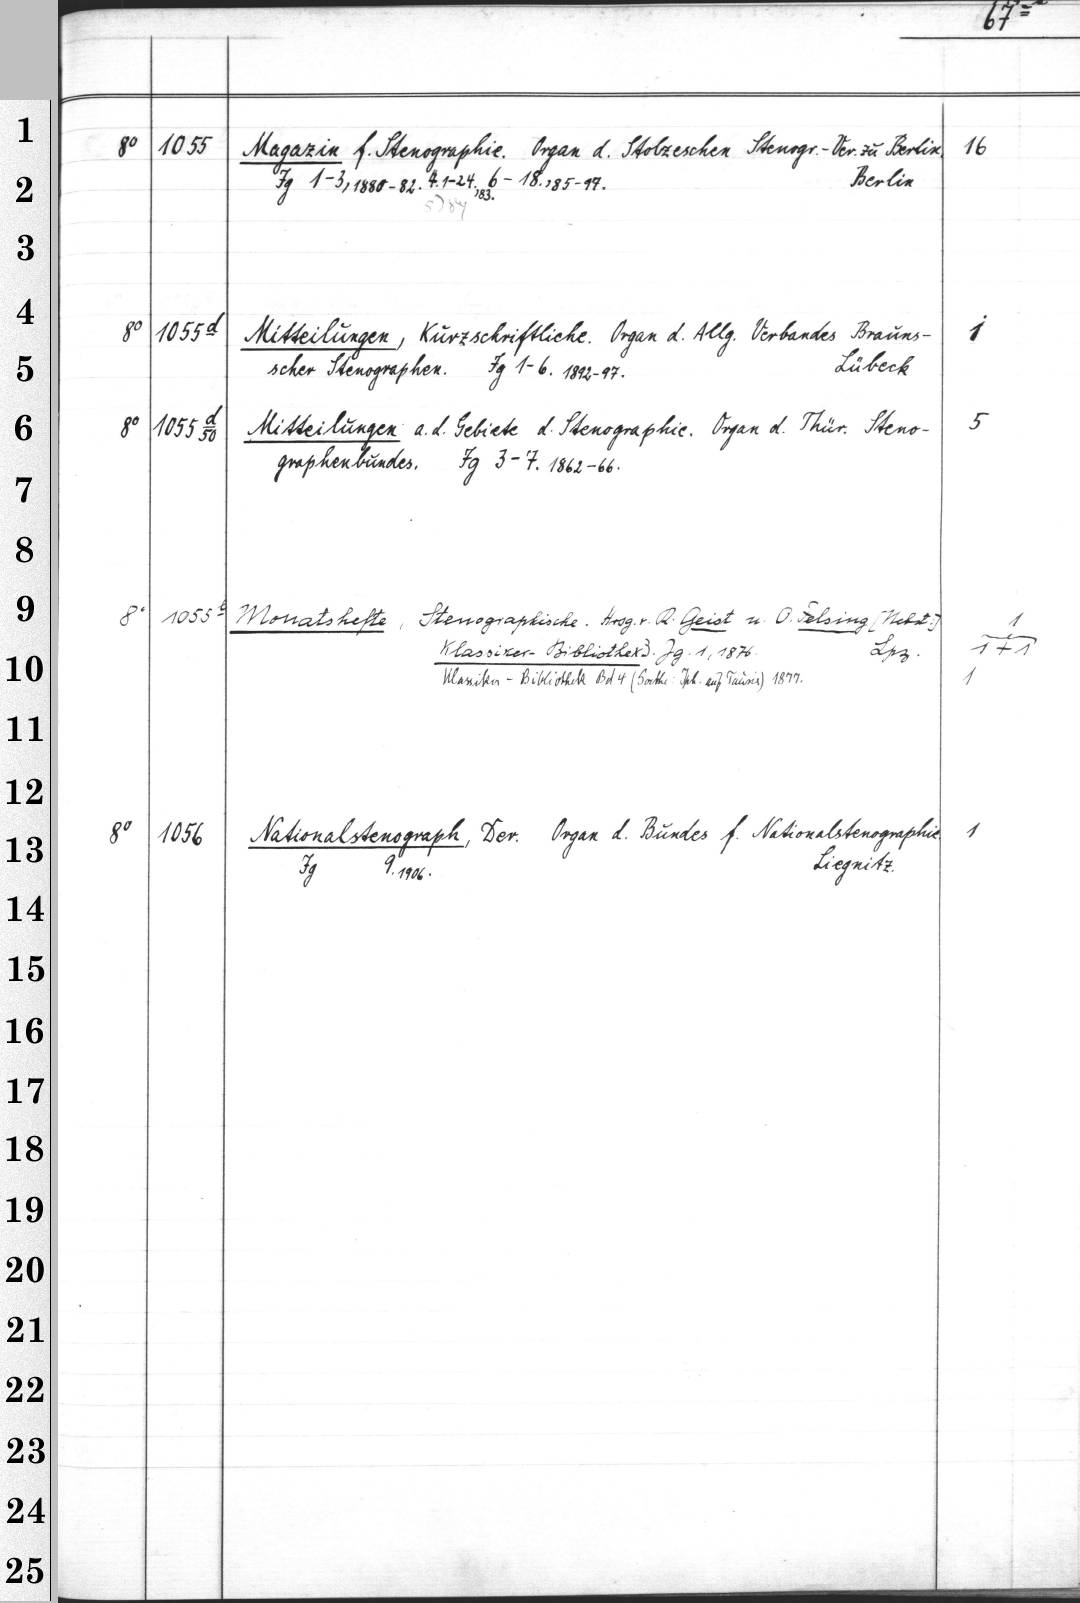 67
1
8° 1055 Magazin f. Stenographie. Organ d. Stolzeschen Stenogr.-Ver. zu Berlin. 16
2
Jg 1-3, 1880-82. 4. 1-24, '83. 6-18., '85-97. Berlin
5) 84
3
4
8° 1055 d Mitteilungen, Kurzschriftliche. Organ d. Allg. Verbandes Brauns- 1
5
scher Stenographen. Jg 1-6. 1892-97. Lübeck
6
8° 1055 d/50 Mitteilungen a. d. Gebiete d. Stenographie. Organ d. Thür. Steno- 5
graphenbundes. Jg 3-7. 1862-66.
7
8
9
8° 1055 Monatshefte, Stenographische. Hrsg. v. R. Geist u. O. Felsing [Nebst:] 1
Klassiker-Bibliothek]. Jg. 1, 1876. Lpz. 1+1
10
Klassiker-Bibliothek Bd 4 (Goethe: Iph. auf Tauris) 1877. 1
11
12
13
8° 1056 Nationalstenograph, Der. Organ d. Bundes f. Nationalstenographie 1
Jg 9. 1906. Liegnitz.
14
15
16
17
18
19
20
21
22
23
24
25